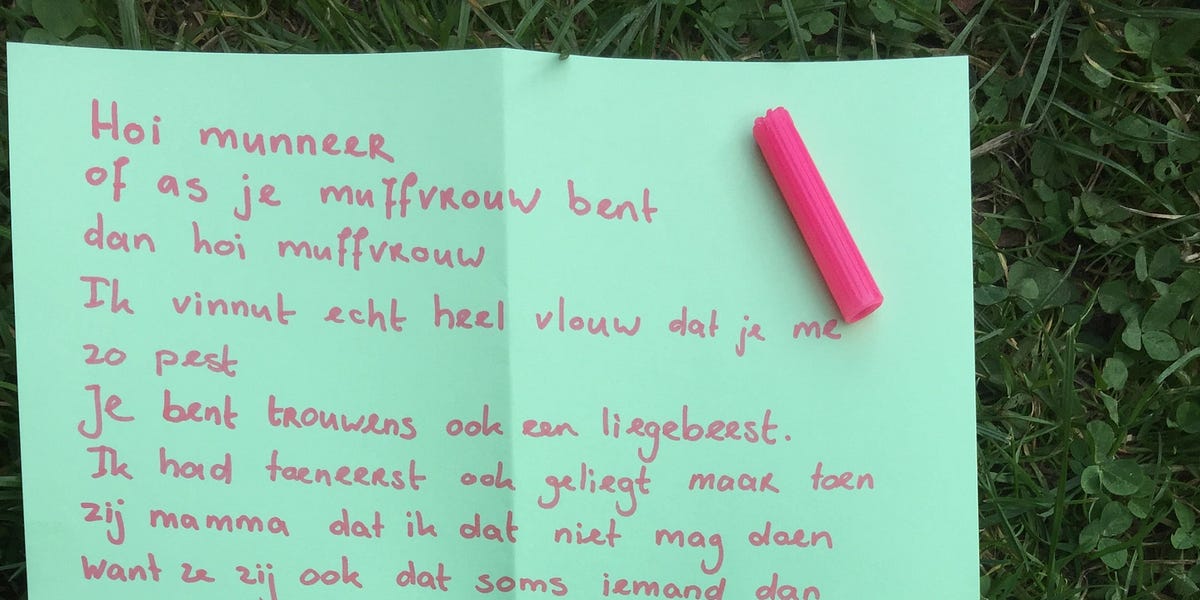 Hoi munneer
of as je muffvrouw bent
dan hoi muffvrouw
Ik vinnut echt heel vlouw dat je me
zo pest
Je bent trouwens ook een liegebeest.
Ik had toeneerst ook geliegt maar toen
zij mamma dat ik dat niet mag doen
want ze zij ook dat soms iemand dan